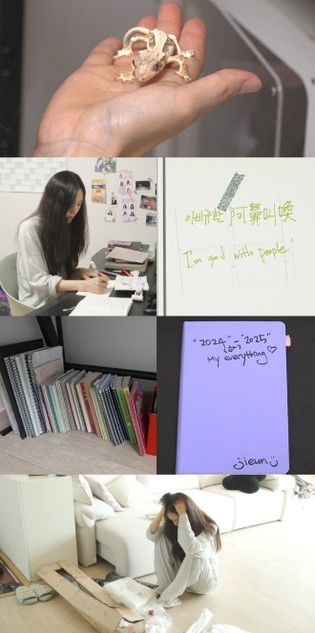 아비규환 阿鼻叫喚
I'm good with people
"2024" ~ "2025"
My everything ♡
jieun